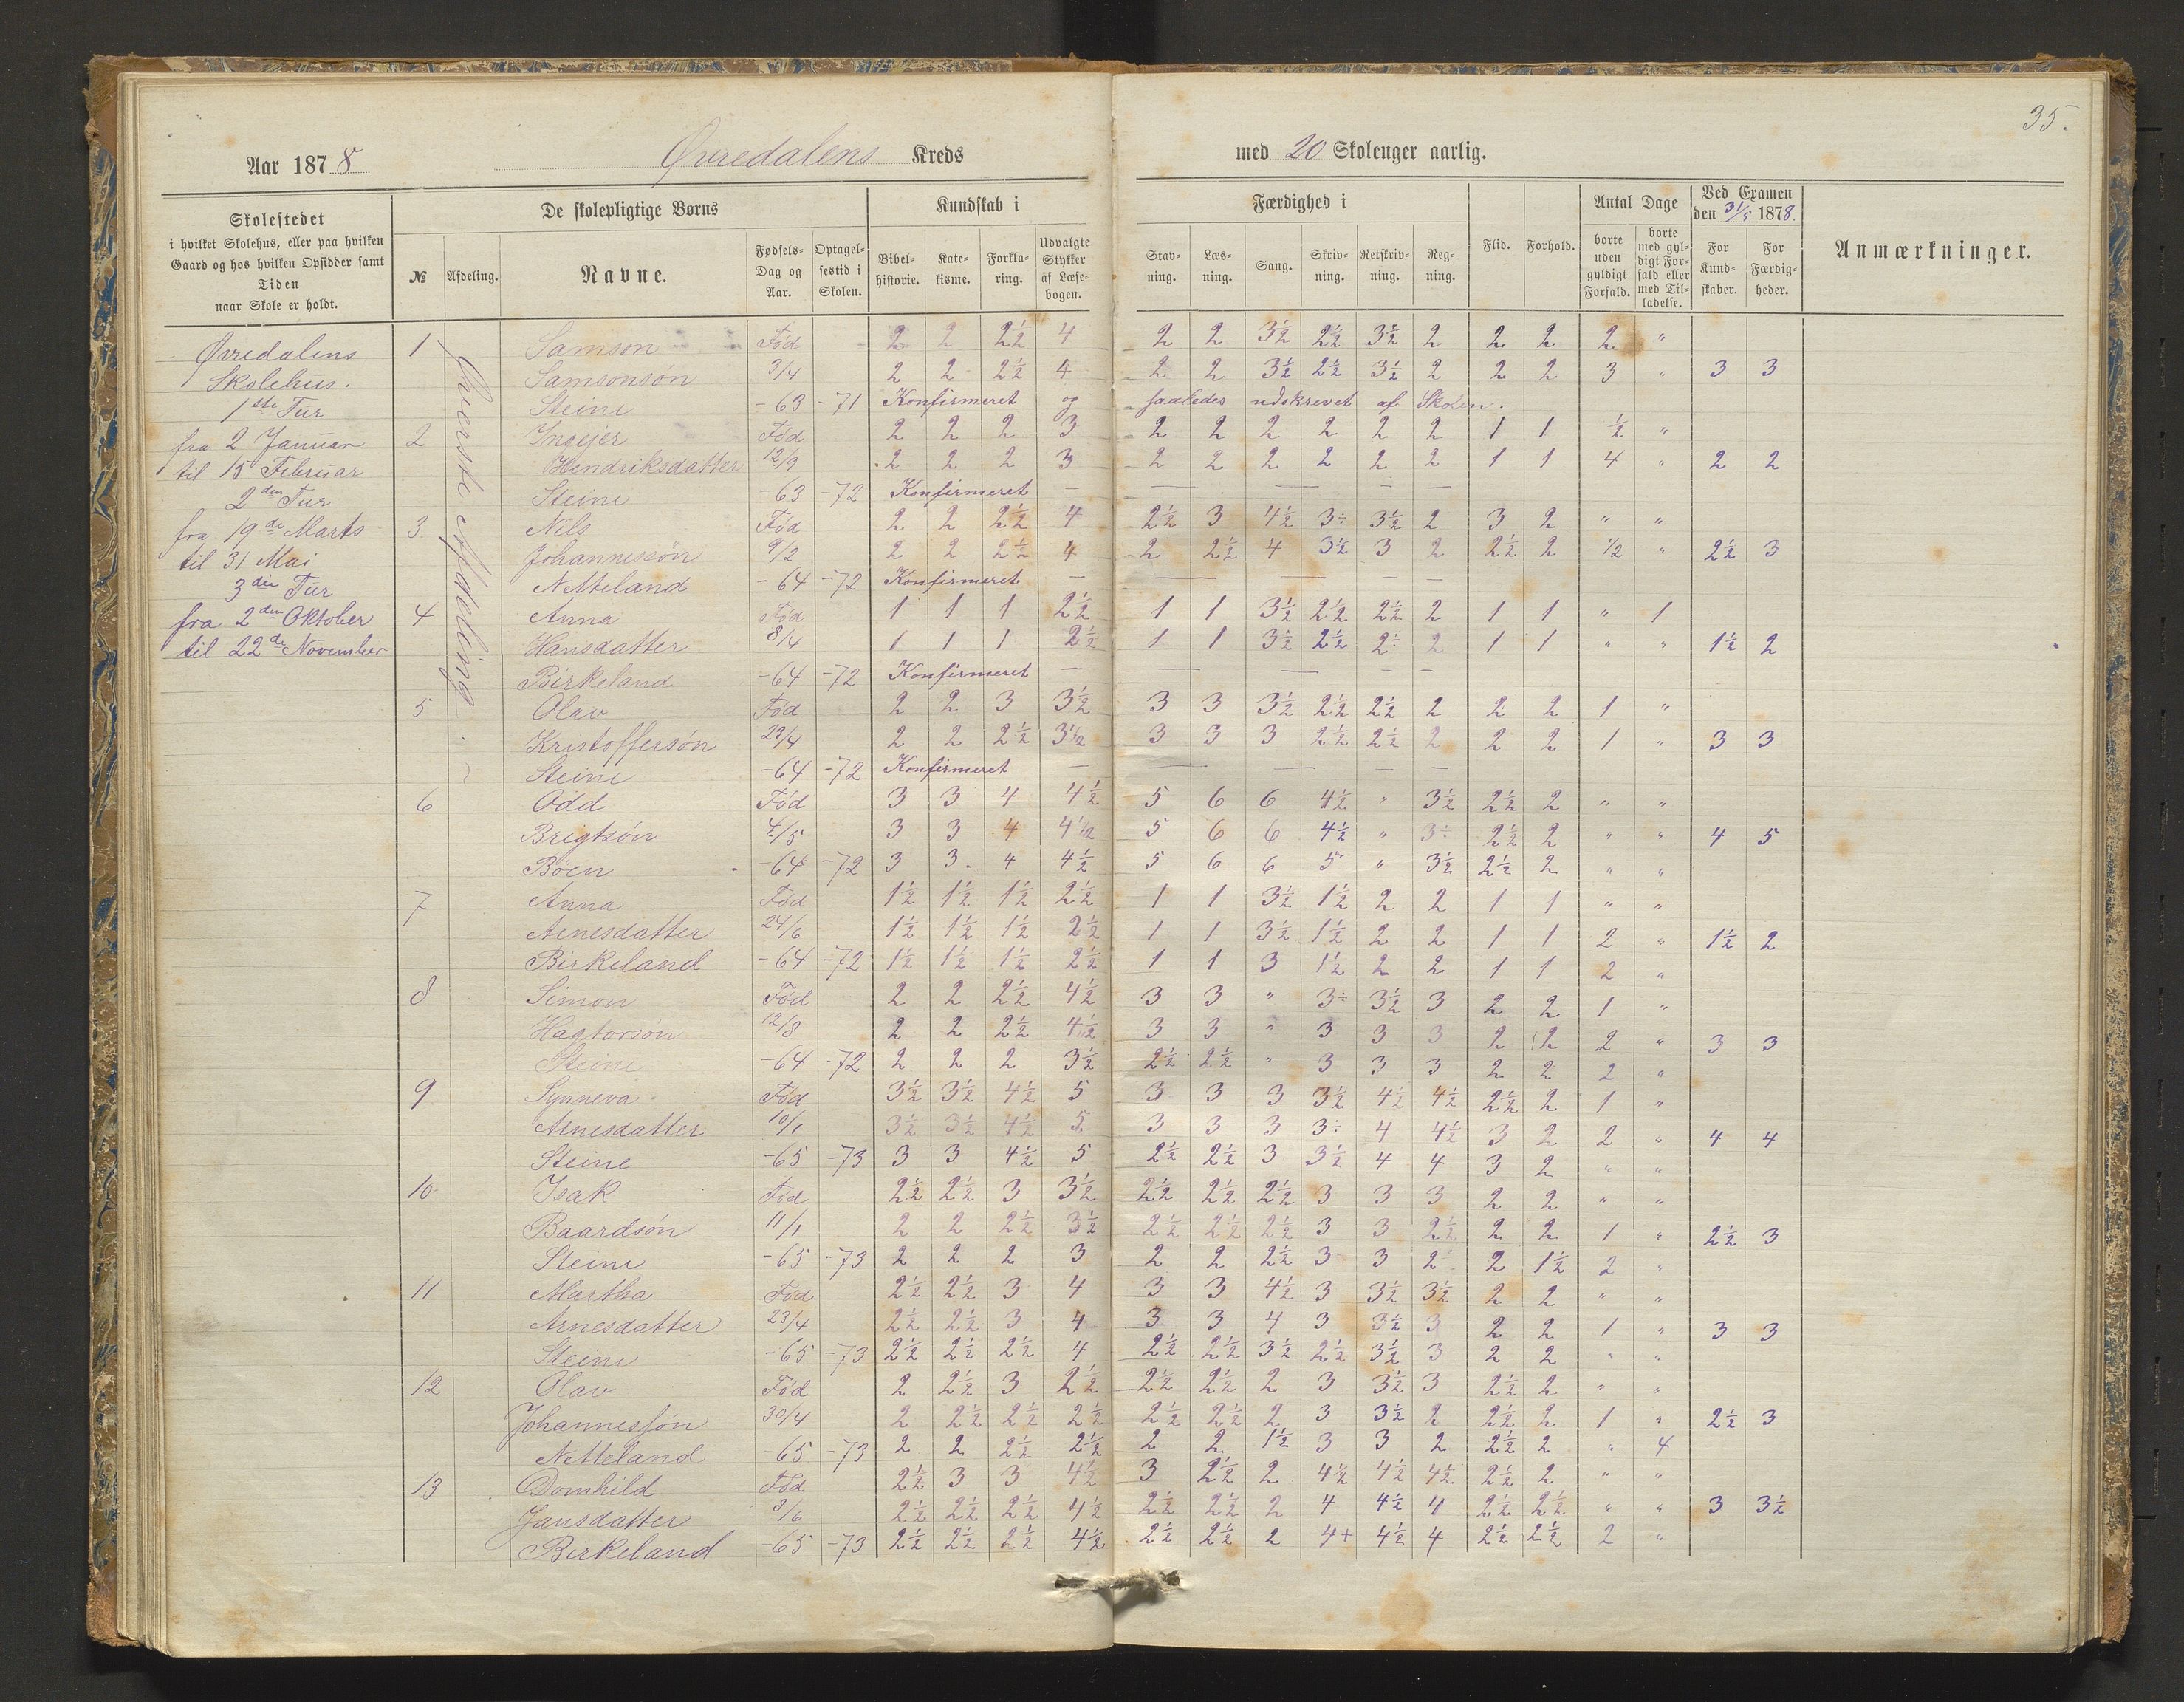 35.
Aar 1878 Øvredalens Kreds med 20 Skoleuger aarlig.
Skolestedet
i hvilket Skolehus, eller paa hvilken
Gaard og hos hvilken Opsidder samt
Tiden
naar Skole er holdt.
De skolepligtige Børns
№ Afdeling. Navne. Fødsels-Dag og Aar. Optagelsestid i Skolen.
Kundskab i
Bibelhistorie. Katekisme. Forklaring. Udvalgte Stykker af Læsebogen.
Færdighed i
Stavning. Læsning. Sang. Skrivning. Retskrivning. Regning.
Flid. Forhold.
Antal Dage
borte uden gyldigt Forfald. borte med gyldigt Forfald eller med Tilladelse.
Ved Examen den 31/5 1878.
For Kundskaber. For Færdigheder.
Anmærkninger.
Øvredalens
Skolehus.
1ste Tur
fra 2 Januar
til 15 Februar
2den Tur
fra 19de Marts
til 31 Mai
3die Tur
fra 2den Oktober
til 22de November
Øverste Afdeling.
1 Samson Fød 2 2 2½ 4 2 2 3½ 2½ 3½ 2 2 2 2 "
Samsonsøn 3/4 2 2 2½ 4 2 2 3½ 2½ 3½ 2 2 2 3 " 3 3
Steine -63 -71 Konfirmeret og saaledes udskrevet af Skolen.
2 Ingejer Fød 2 2 2 3 2 2 2 2 2 2 1 1 ½ "
Hendriksdatter 12/9 2 2 2 3 2 2 2 2 2 2 1 1 4 " 2 2
Steine -63 -72 Konfirmeret — — — — —
3 Nils Fød 2 2 2½ 4 2½ 3 4½ 3÷ 3½ 2 3 2 " "
Johannessøn 9/2 2 2 2½ 4 2 2½ 4 3½ 3 2 2½ 2 ½ " 2½ 3
Netteland -64 -72 Konfirmeret — — — — —
4 Anna Fød 1 1 1 2½ 1 1 3½ 2½ 2½ 2 1 1 " 1
Hansdatter 8/4 1 1 1 2½ 1 1 3½ 2½ 2÷ 2 1 1 " " 1½ 2
Birkeland -64 -72 Konfirmeret — — — — —
5 Olav Fød 2 2 3 3½ 3 3 3½ 2½ 2½ 2 2 2 1 "
Kristoffersøn 23/4 2 2 2½ 3½ 3 3 3 2½ 2½ 2 2 2 1 " 3 3
Steine -64 -72 Konfirmeret — — — — —
6 Odd Fød 3 3 4 4½ 5 6 6 4½ " 3½ 2½ 2 " "
Brigtsøn 4/5 3 3 4 4½ 5 6 6 4½ " 3÷ 2½ 2 " " 4 5
Bøen -64 -72 3 3 4 4½ 5 6 6 5 " 3½ 2½ 2 " "
7 Anna Fød 1½ 1½ 1½ 2½ 1 1 3½ 1½ 2 2 1 1 " "
Arnesdatter 24/6 1½ 1½ 1½ 2½ 1 1 3½ 1½ 2 2 1 1 2 " 1½ 2
Birkeland -64 -72 1½ 1½ 1½ 2½ 1 1 3 1½ 2 2 1 1 2 "
8 Simon Fød 2 2 2½ 4½ 3 3 " 3÷ 3½ 3 2 2 1 "
Hagtorsøn 12/8 2 2 2½ 4½ 3 3 " 3 3 3 2 2 2 " 3 3
Steine -64 -72 2 2 2 3½ 2½ 2½ " 3 3 3 2 2 2 "
9 Synneva Fød 3½ 3½ 4½ 5 3 3 3 3½ 4½ 4½ 2½ 2 1 "
Arnesdatter 10/1 3½ 3½ 4½ 5 3 3 3 3÷ 4 4½ 3 2 2 " 4 4
Steine -65 -73 3 3 4½ 5 2½ 2½ 3 3½ 4 4 3 2 " "
10 Isak Fød 2½ 2½ 3 3½ 2½ 2½ 2½ 3 3 3 2 2 " "
Baardsøn 11/1 2 2 2½ 3½ 2½ 2½ 2½ 3 3 2½ 2 2 1 " 2½ 3
Steine -65 -73 2 2 2 3 2 2 2½ 3 3 2 2 1½ 2 "
11 Martha Fød 2½ 2½ 3 4 3 3 4½ 3 3½ 3½ 2 2 " "
Arnesdatter 23/4 2½ 2½ 3 4 3 3 4 3 3½ 3 2 2 1 " 3 3
Steine -65 -73 2½ 2½ 2½ 4 2½ 2½ 3½ 2½ 3½ 3 2 2 " "
12 Olav Fød 2 2½ 3 2½ 2½ 2½ 2 3 3½ 3 2½ 2 " "
Johannessøn 30/4 2 2½ 2½ 2½ 2½ 2½ 2 3 3½ 2 2½ 2 1 " 2½ 3
Netteland -65 -73 2 2 2½ 2½ 2 2 1½ 3 3 2 2½ 2 " 4
13 Domhild Fød 2½ 3 3 4½ 3 2½ 2 4½ 4½ 4½ 2½ 2 " "
Jansdatter 8/6 2½ 2½ 2½ 4½ 2½ 2½ 2 4 4½ 4 2½ 2½ " " 3 3½
Birkeland -65 -73 2½ 2½ 2½ 4½ 2½ 2½ 2 4+ 4½ 4 2½ 2½ 2 "